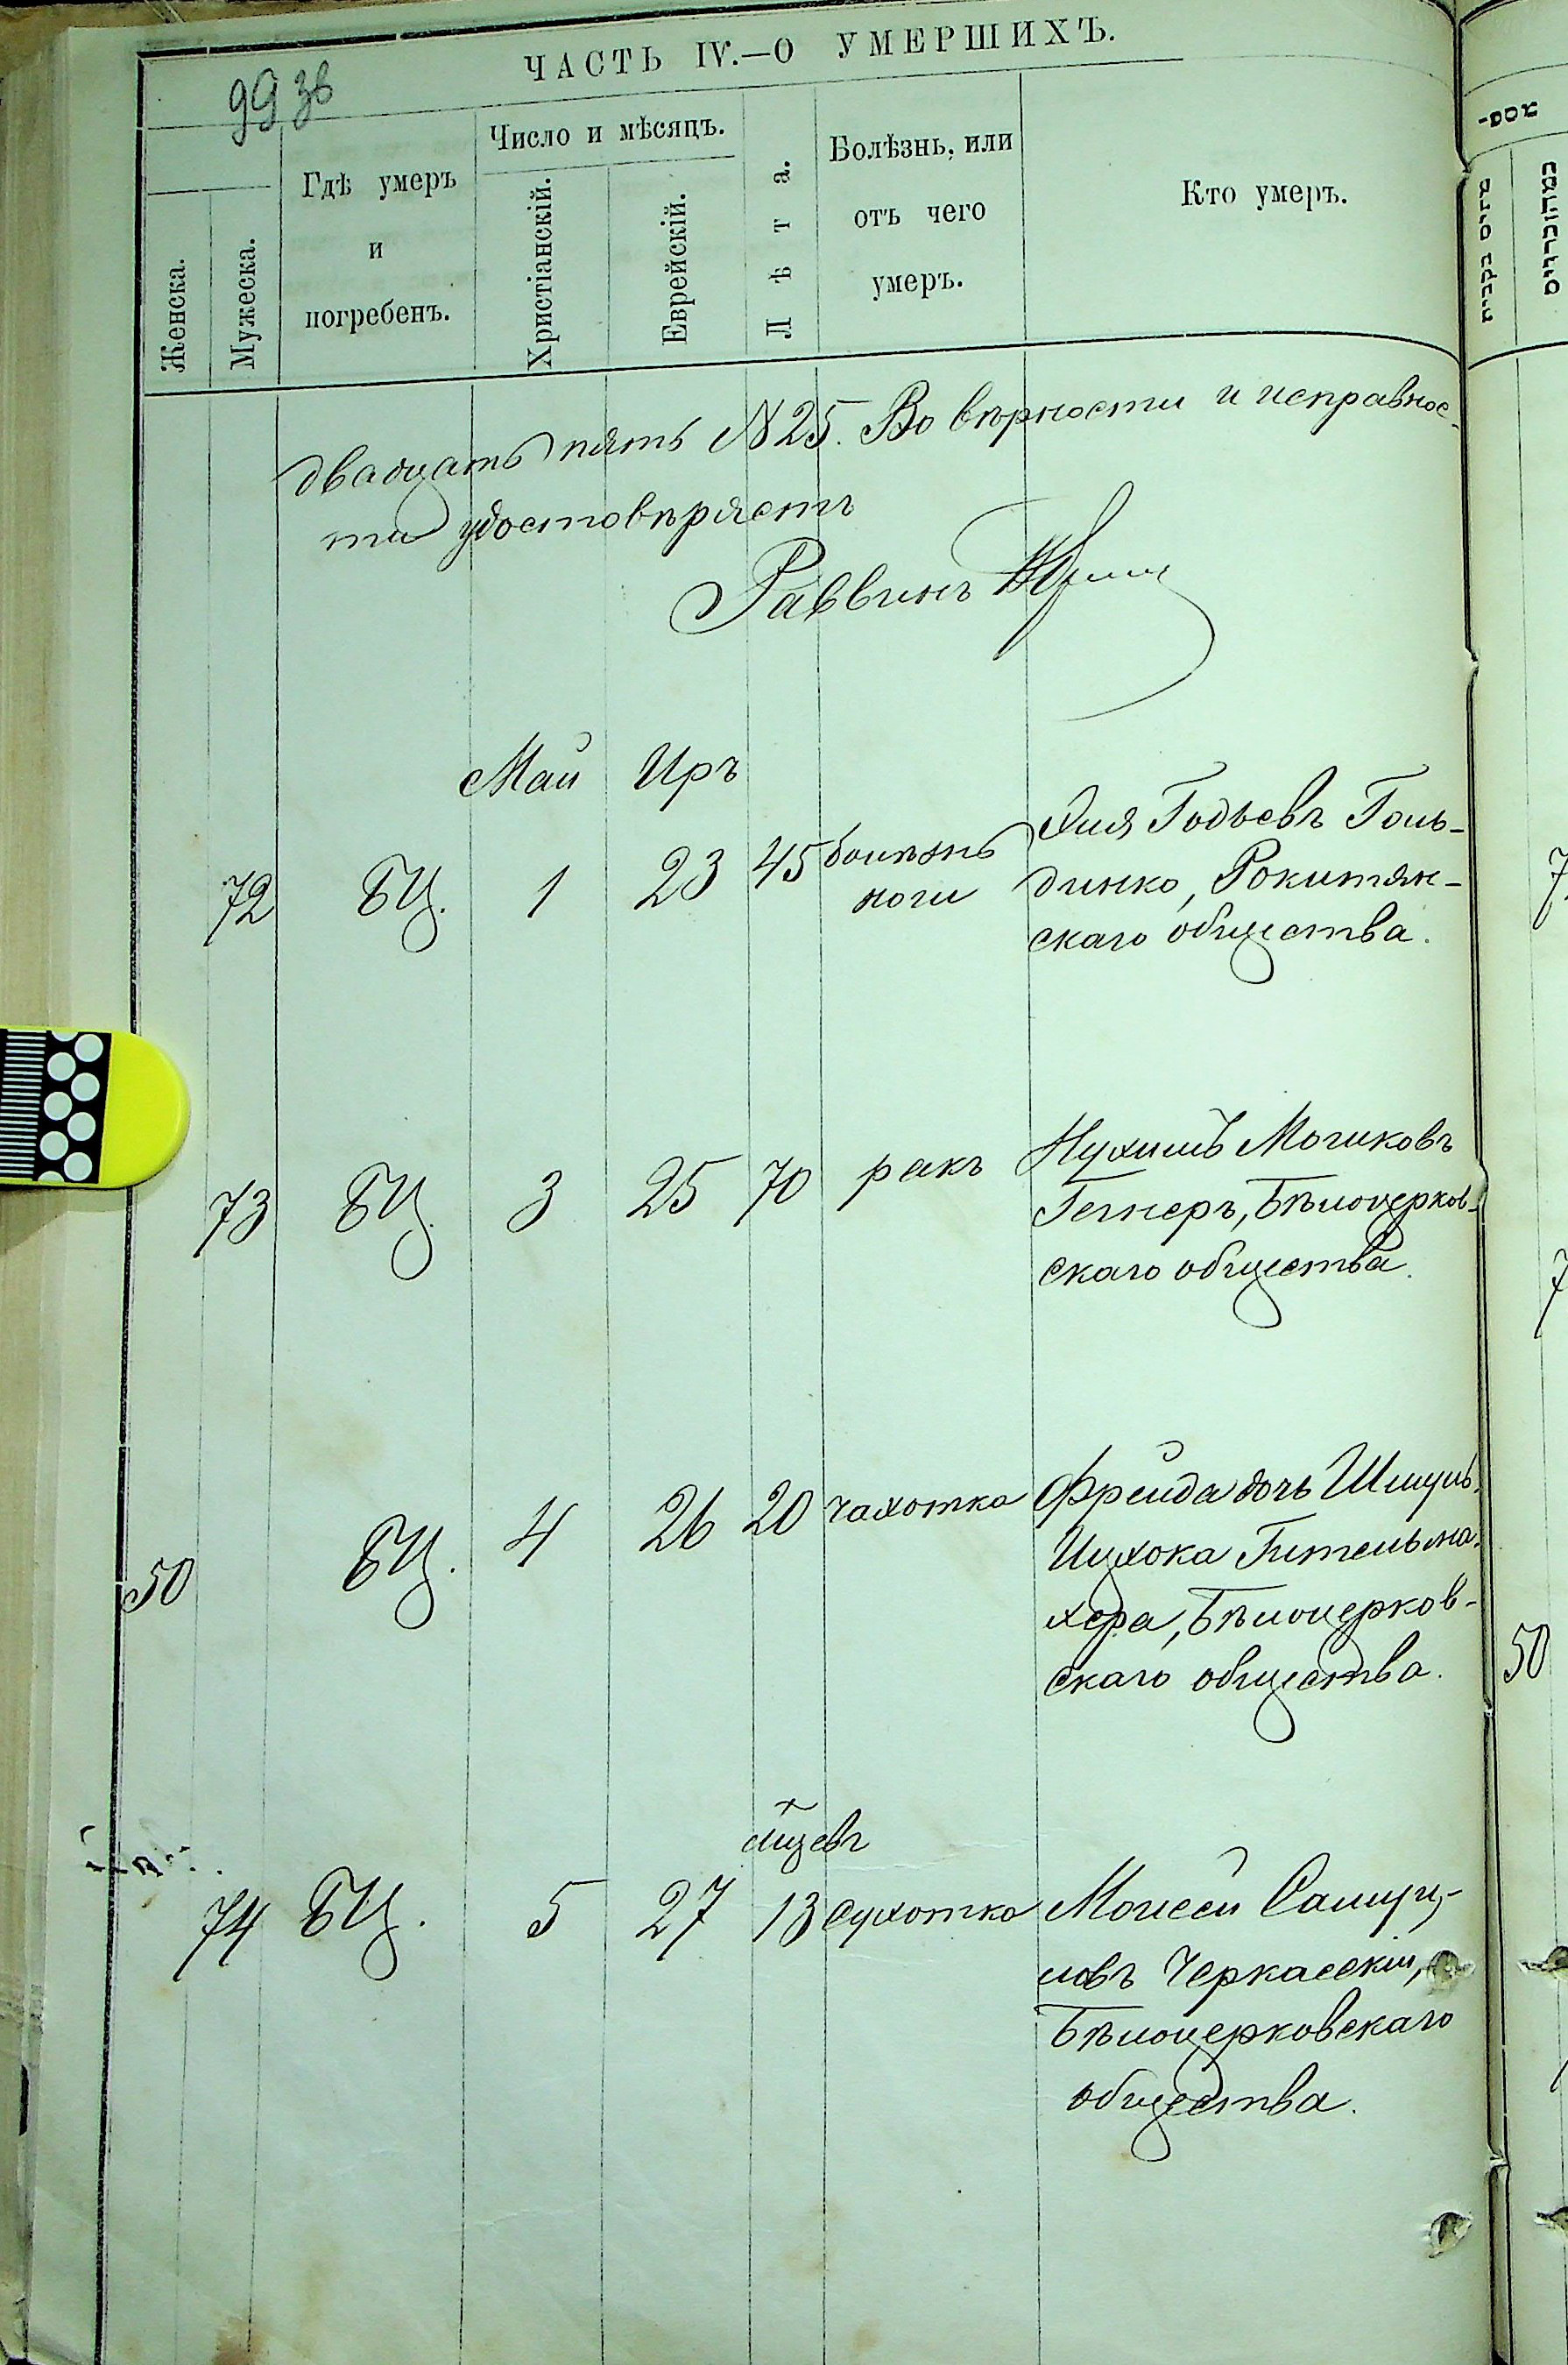 99 зв
ЧАСТЬ IV.—О УМЕРШИХЪ.
Женска.
Мужеска.
Гдѣ умеръ
и
погребенъ.
Число и мѣсяцъ.
Христіанскій.
Еврейскій.
Лѣта.
Болѣзнь, или
отъ чего
умеръ.
Кто умеръ.
двадцать пять №25. Во вѣрности и исправнос-
ти удостовѣряетъ
Раввинъ
Май Иръ
72 БЦ. 1 23 45 болѣзнь ноги
Эля Годьевъ Голь-
динко, Рокитян-
скаго общества.
73 БЦ. 3 25 70 ракъ
Нухимъ Мошковъ
Гегнеръ, Бѣлоцерков-
скаго общества.
50 БЦ. 4 26 20 чахотка
Фрейда дочь Шмуль
Ицхока Гительма-
хера, Бѣлоцерков-
скаго общества.
50
мцевъ
74 БЦ. 5 27 13 сухотка
Моисей Самуи-
ловъ Черкасскій,
Бѣлоцерковскаго
общества.